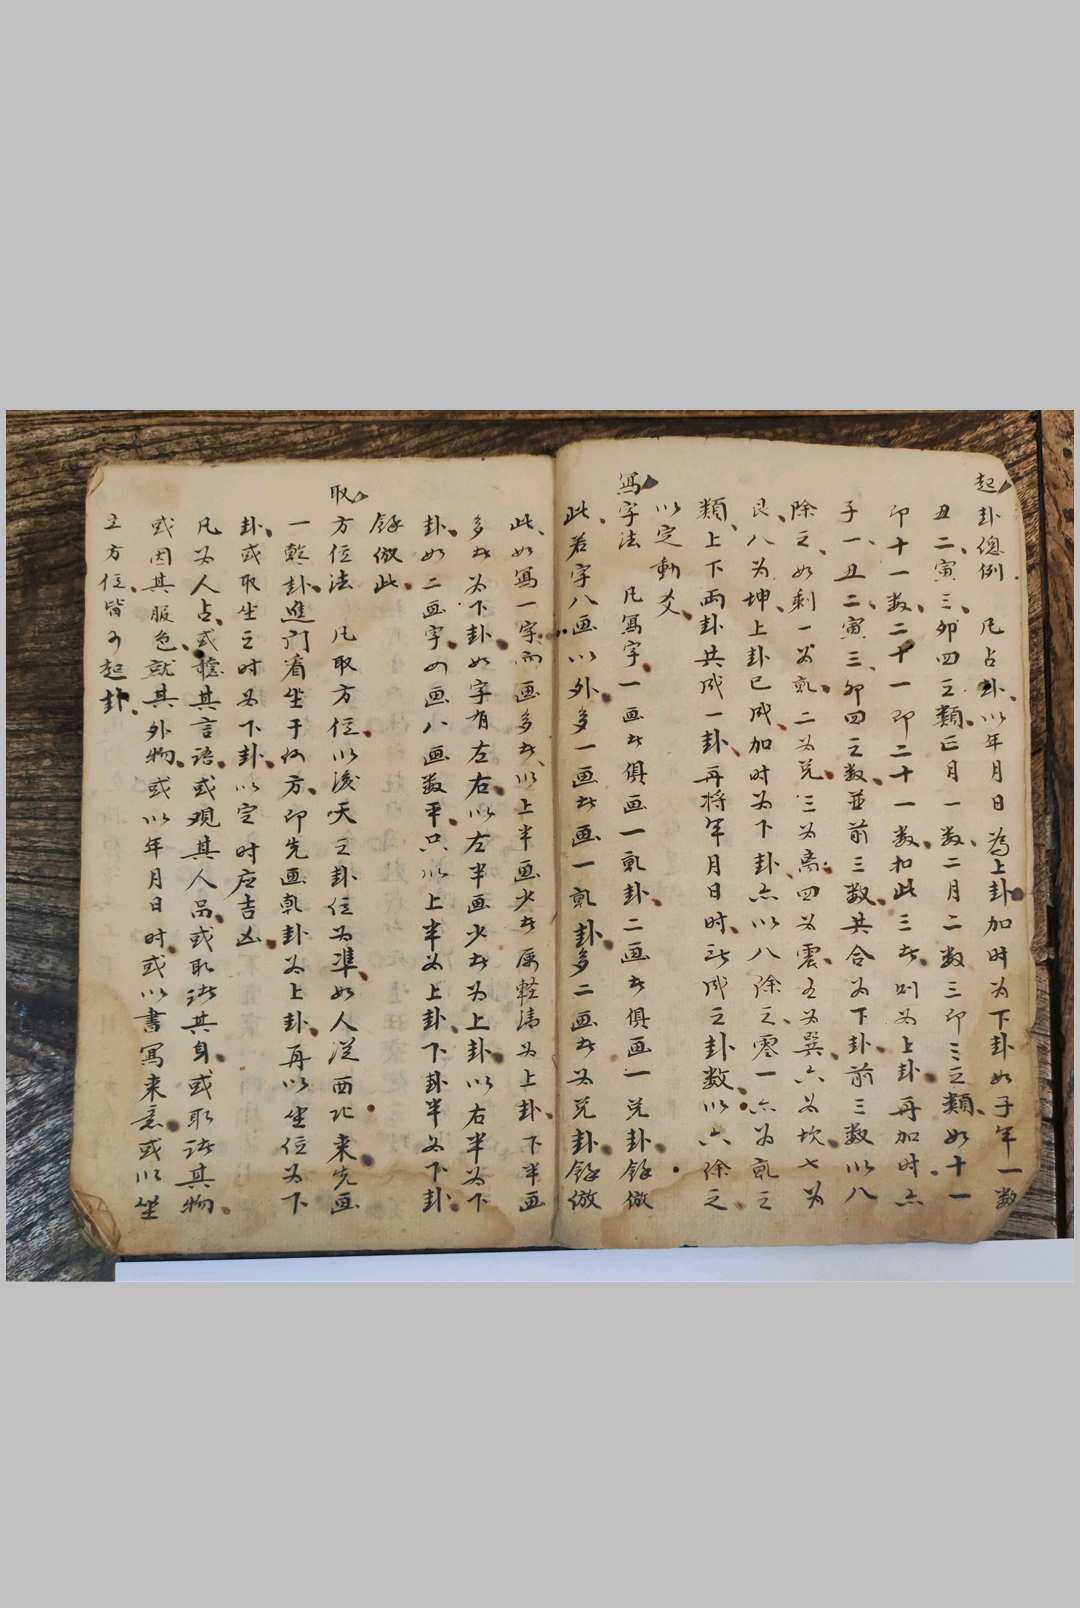 起卦總例 凡占卦以年月日為上卦加时为下卦如子年一数
丑二寅三卯四之類正月一数二月二数三即三之類如十一
即十一数二十一即二十一数扣此三者则为上卦再加时亦
子一丑二寅三卯四之数並前三数共合为下卦前三数以八
除之如剩一为乾二为兑三为离四为震五为巽六为坎七为
艮八为坤上卦已成加时为下卦亦以八除之零一亦为乾之
類上下两卦共成一卦再将年月日时所成之卦数以六除之
以定動爻
寫字法 凡寫字一画者俱画一乾卦二画者俱画一兑卦餘倣
此若字八画以外多一画者画一乾卦多二画者为兑卦餘倣
此如寫一字而画多者以上半画少者属輕清为上卦下半画
多者为下卦如字有左右以左半画少者为上卦以右半为下
卦如二画字四画八画数平只以上半为上卦下卦半为下卦
餘倣此
取方位法 凡取方位以後天之卦位为準如人從西北来先画
一乾卦進门看坐于何方即先画乾卦为上卦再以坐位为下
卦或取坐之时为下卦以定时应吉凶
凡为人占或聽其言語或观其人品或取諸其身或取諸其物
或因其服色就其外物或以年月日时或以書寫来意或以坐
立方位皆可起卦